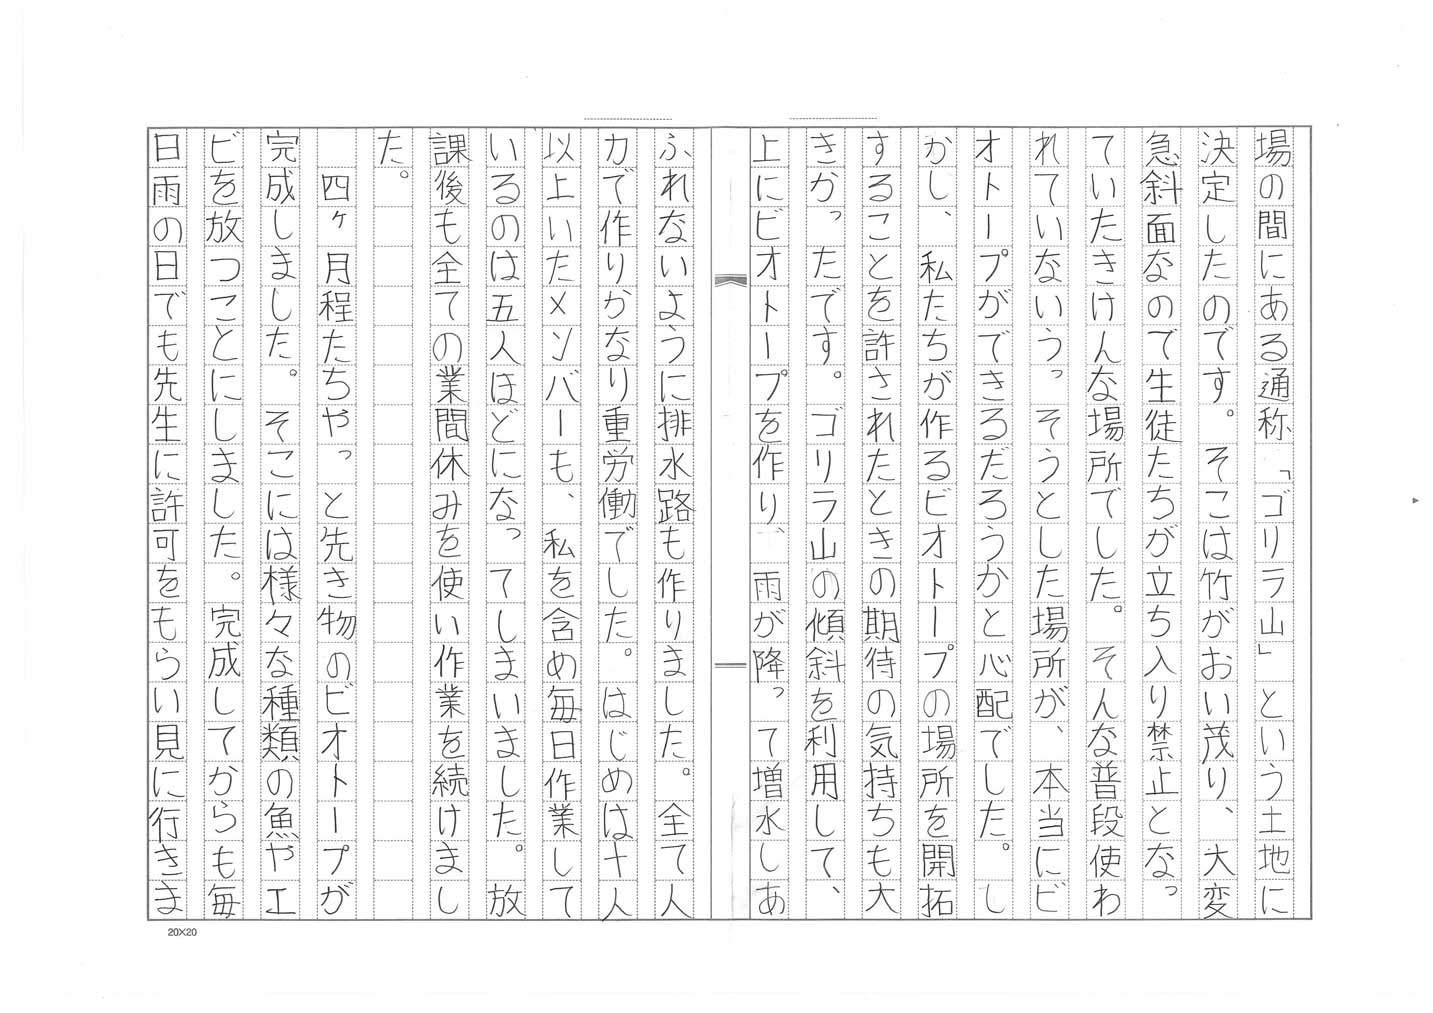 場の間にある通称「ゴリラ山」という土地に
決定したのです。そこは竹がおい茂り、大変
急斜面なので生徒たちが立ち入り禁止となっ
ていたきけんな場所でした。そんな普段使わ
れていないうっそうとした場所が、本当にビ
オトープができるだろうかと心配でした。し
かし、私たちが作るビオトープの場所を開拓
することを許されたときの期待の気持ちも大
きかったです。ゴリラ山の傾斜を利用して、
上にビオトープを作り、雨が降って増水しあ
ふれないように排水路も作りました。全て人
力で作りかなり重労働でした。はじめは十人
以上いたメンバーも、私を含め毎日作業して
いるのは五人ほどになってしまいました。放
課後も全ての業間休みを使い作業を続けまし
た。
四ヶ月程たちやっと先き物のビオトープが
完成しました。そこには様々な種類の魚やエ
ビを放つことにしました。完成してからも毎
日雨の日でも先生に許可をもらい見に行きま
20×20